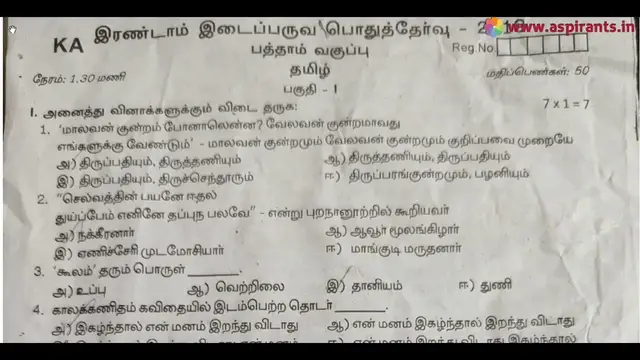 www.aspirants.in
KA இரண்டாம் இடைப்பருவ பொதுத்தேர்வு - 2
Reg.No
பத்தாம் வகுப்பு
தமிழ்
நேரம்: 1.30 மணி
மதிப்பெண்கள்: 50
பகுதி - I
I. அனைத்து வினாக்களுக்கும் விடை தருக: 7 x 1 = 7
1. 'மாலவன் குன்றம் போனாலென்ன? வேலவன் குன்றமாவது
எங்களுக்கு வேண்டும்' - மாலவன் குன்றமும் வேலவன் குன்றமும் குறிப்பவை முறையே
அ) திருப்பதியும், திருத்தணியும் ஆ) திருத்தணியும், திருப்பதியும்
இ) திருப்பதியும், திருச்செந்தூரும் ஈ) திருப்பரங்குன்றமும், பழனியும்
2. "செல்வத்தின் பயனே ஈதல்
துய்ப்பேம் எனினே தப்புந பலவே" - என்று புறநானூற்றில் கூறியவர்
அ) நக்கீரனார் ஆ) ஆவூர் மூலங்கிழார்
இ) எணிச்சேரி முடமோசியார் ஈ) மாங்குடி மருதனார்
3. 'கூலம்' தரும் பொருள் ______.
அ) உப்பு ஆ) வெற்றிலை இ) தானியம் ஈ) துணி
4. காலக்கணிதம் கவிதையில் இடம்பெற்ற தொடர் ______.
அ) இகழ்ந்தால் என் மனம் இறந்து விடாது ஆ) என் மனம் இகழ்ந்தால் இறந்து விடாது